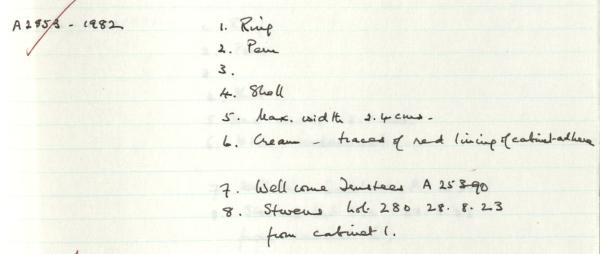 A2953 - 1982 1. Ring
2. Peru
3.
4. Shell
5. Max. width 2.4 cms.
6. Cream - traces of red lining of cabinet adhere
7. Wellcome Trustees A 25390
8. Stevens lot. 280 28. 8. 23
from cabinet 1.